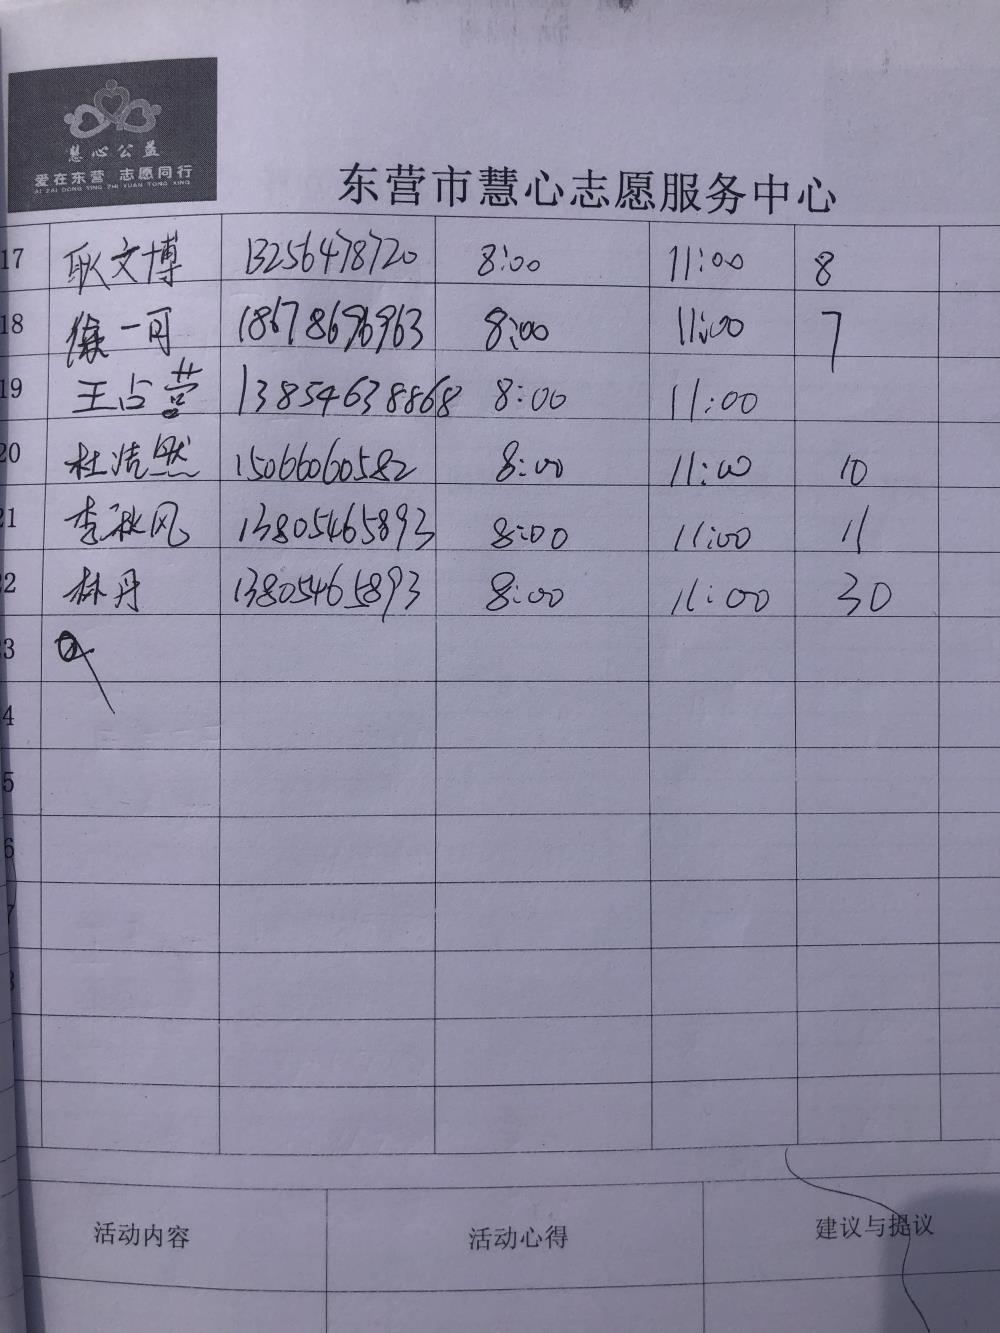 慧心公益
爱在东营 志愿同行
AI ZAI DONG YING ZHI YUAN TONG XING
东营市慧心志愿服务中心
17 耿文博 13256478720 8:00 11:00 8
18 徐一可 18678696963 8:00 11:00 7
19 王占营 13854638868 8:00 11:00
20 杜浩然 15066060582 8:00 11:00 10
21 李秋风 13805465893 8:00 11:00 11
2 林丹 13805465893 8:00 11:00 30
3
4
5
6
7
8
活动内容 活动心得 建议与提议